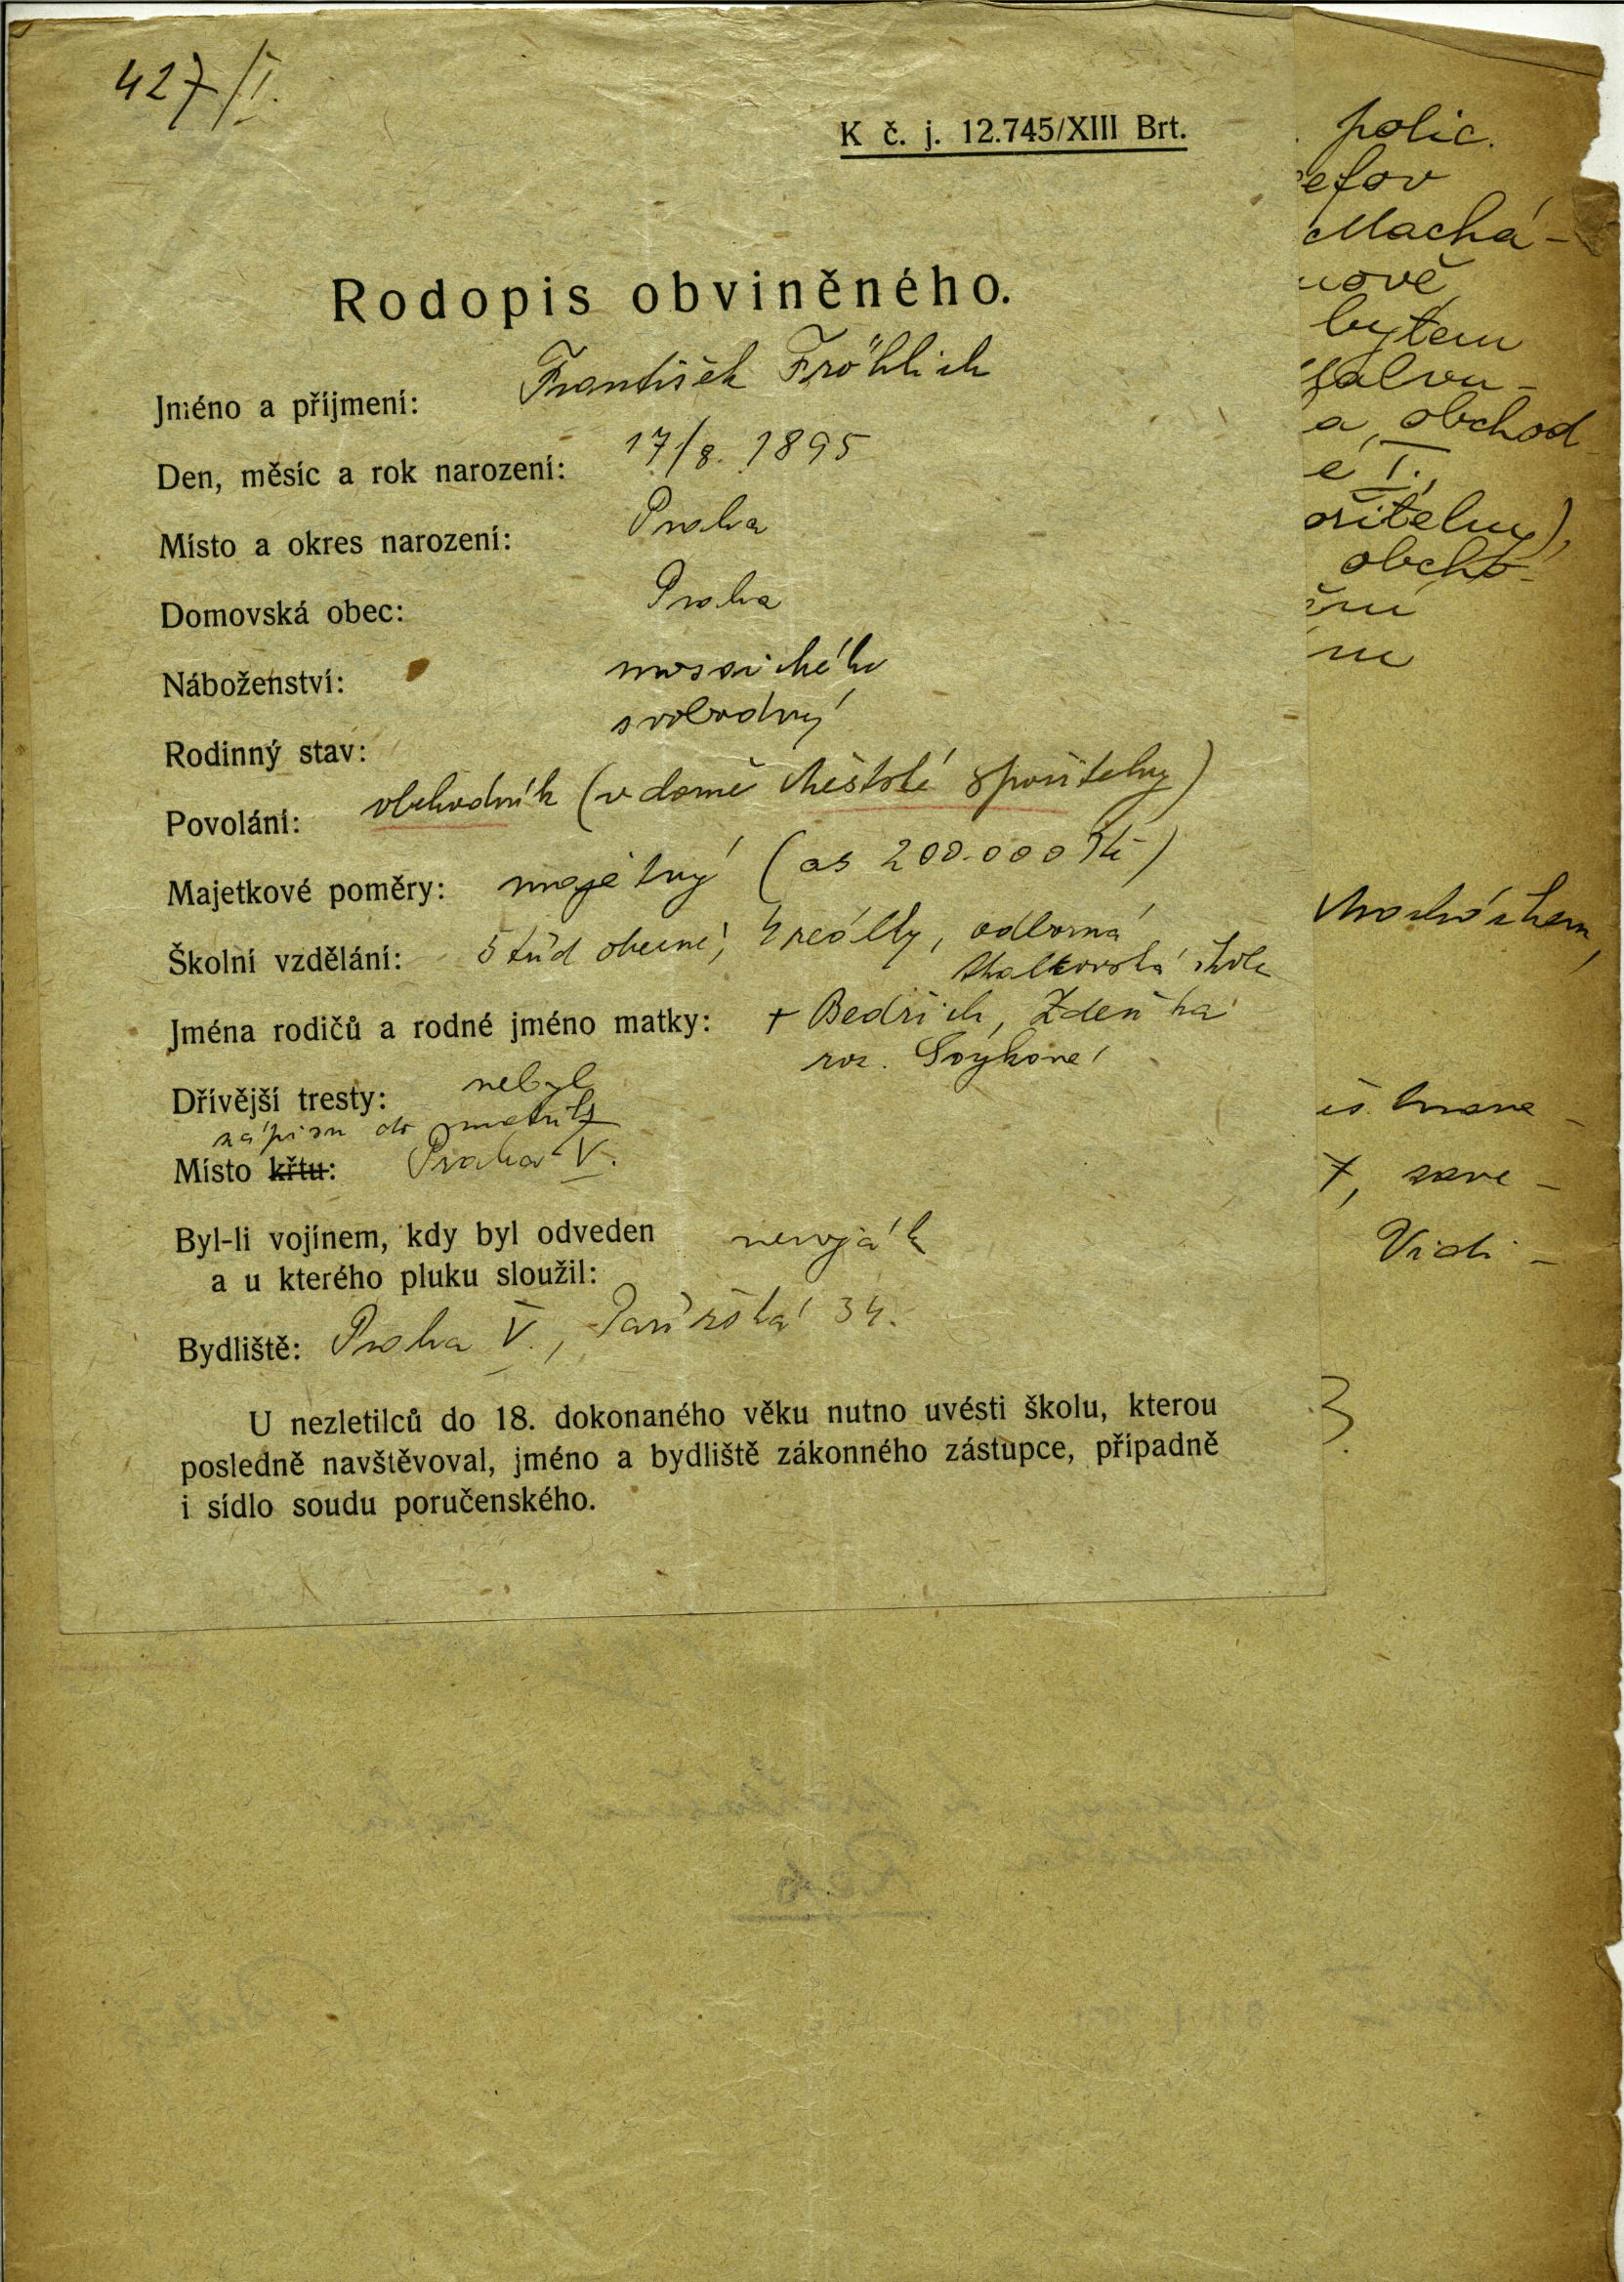 427/I.
K č. j. 12.745/XIII Brt.
Rodopis obviněného.
Jméno a příjmení: František Fröhlich
Den, měsíc a rok narození: 17/8. 1895
Místo a okres narození: Praha
Domovská obec: Praha
Náboženství: mosaického
Rodinný stav: svobodný
Povolání: obchodník (v domě Městské spořitelny)
Majetkové poměry: majetný (as 200.000 Kč)
Školní vzdělání: 5 tříd obecné, 4 reálky, odborná
škola
Jména rodičů a rodné jméno matky: + Bedřich, Zdeňka
roz.
Dřívější tresty: nebyl
zápisu do matriky
Místo křtu: Praha V.
Byl-li vojínem, kdy byl odveden nevoják
a u kterého pluku sloužil:
Bydliště: Praha V., Pařížská 34.
U nezletilců do 18. dokonaného věku nutno uvésti školu, kterou
posledně navštěvoval, jméno a bydliště zákonného zástupce, případně
i sídlo soudu poručenského.
polic.
efov
Machá-
nově
bytem
a, obchod
e I.,
ořitelny),
obcho-
7, zave-
Vidi-
3.